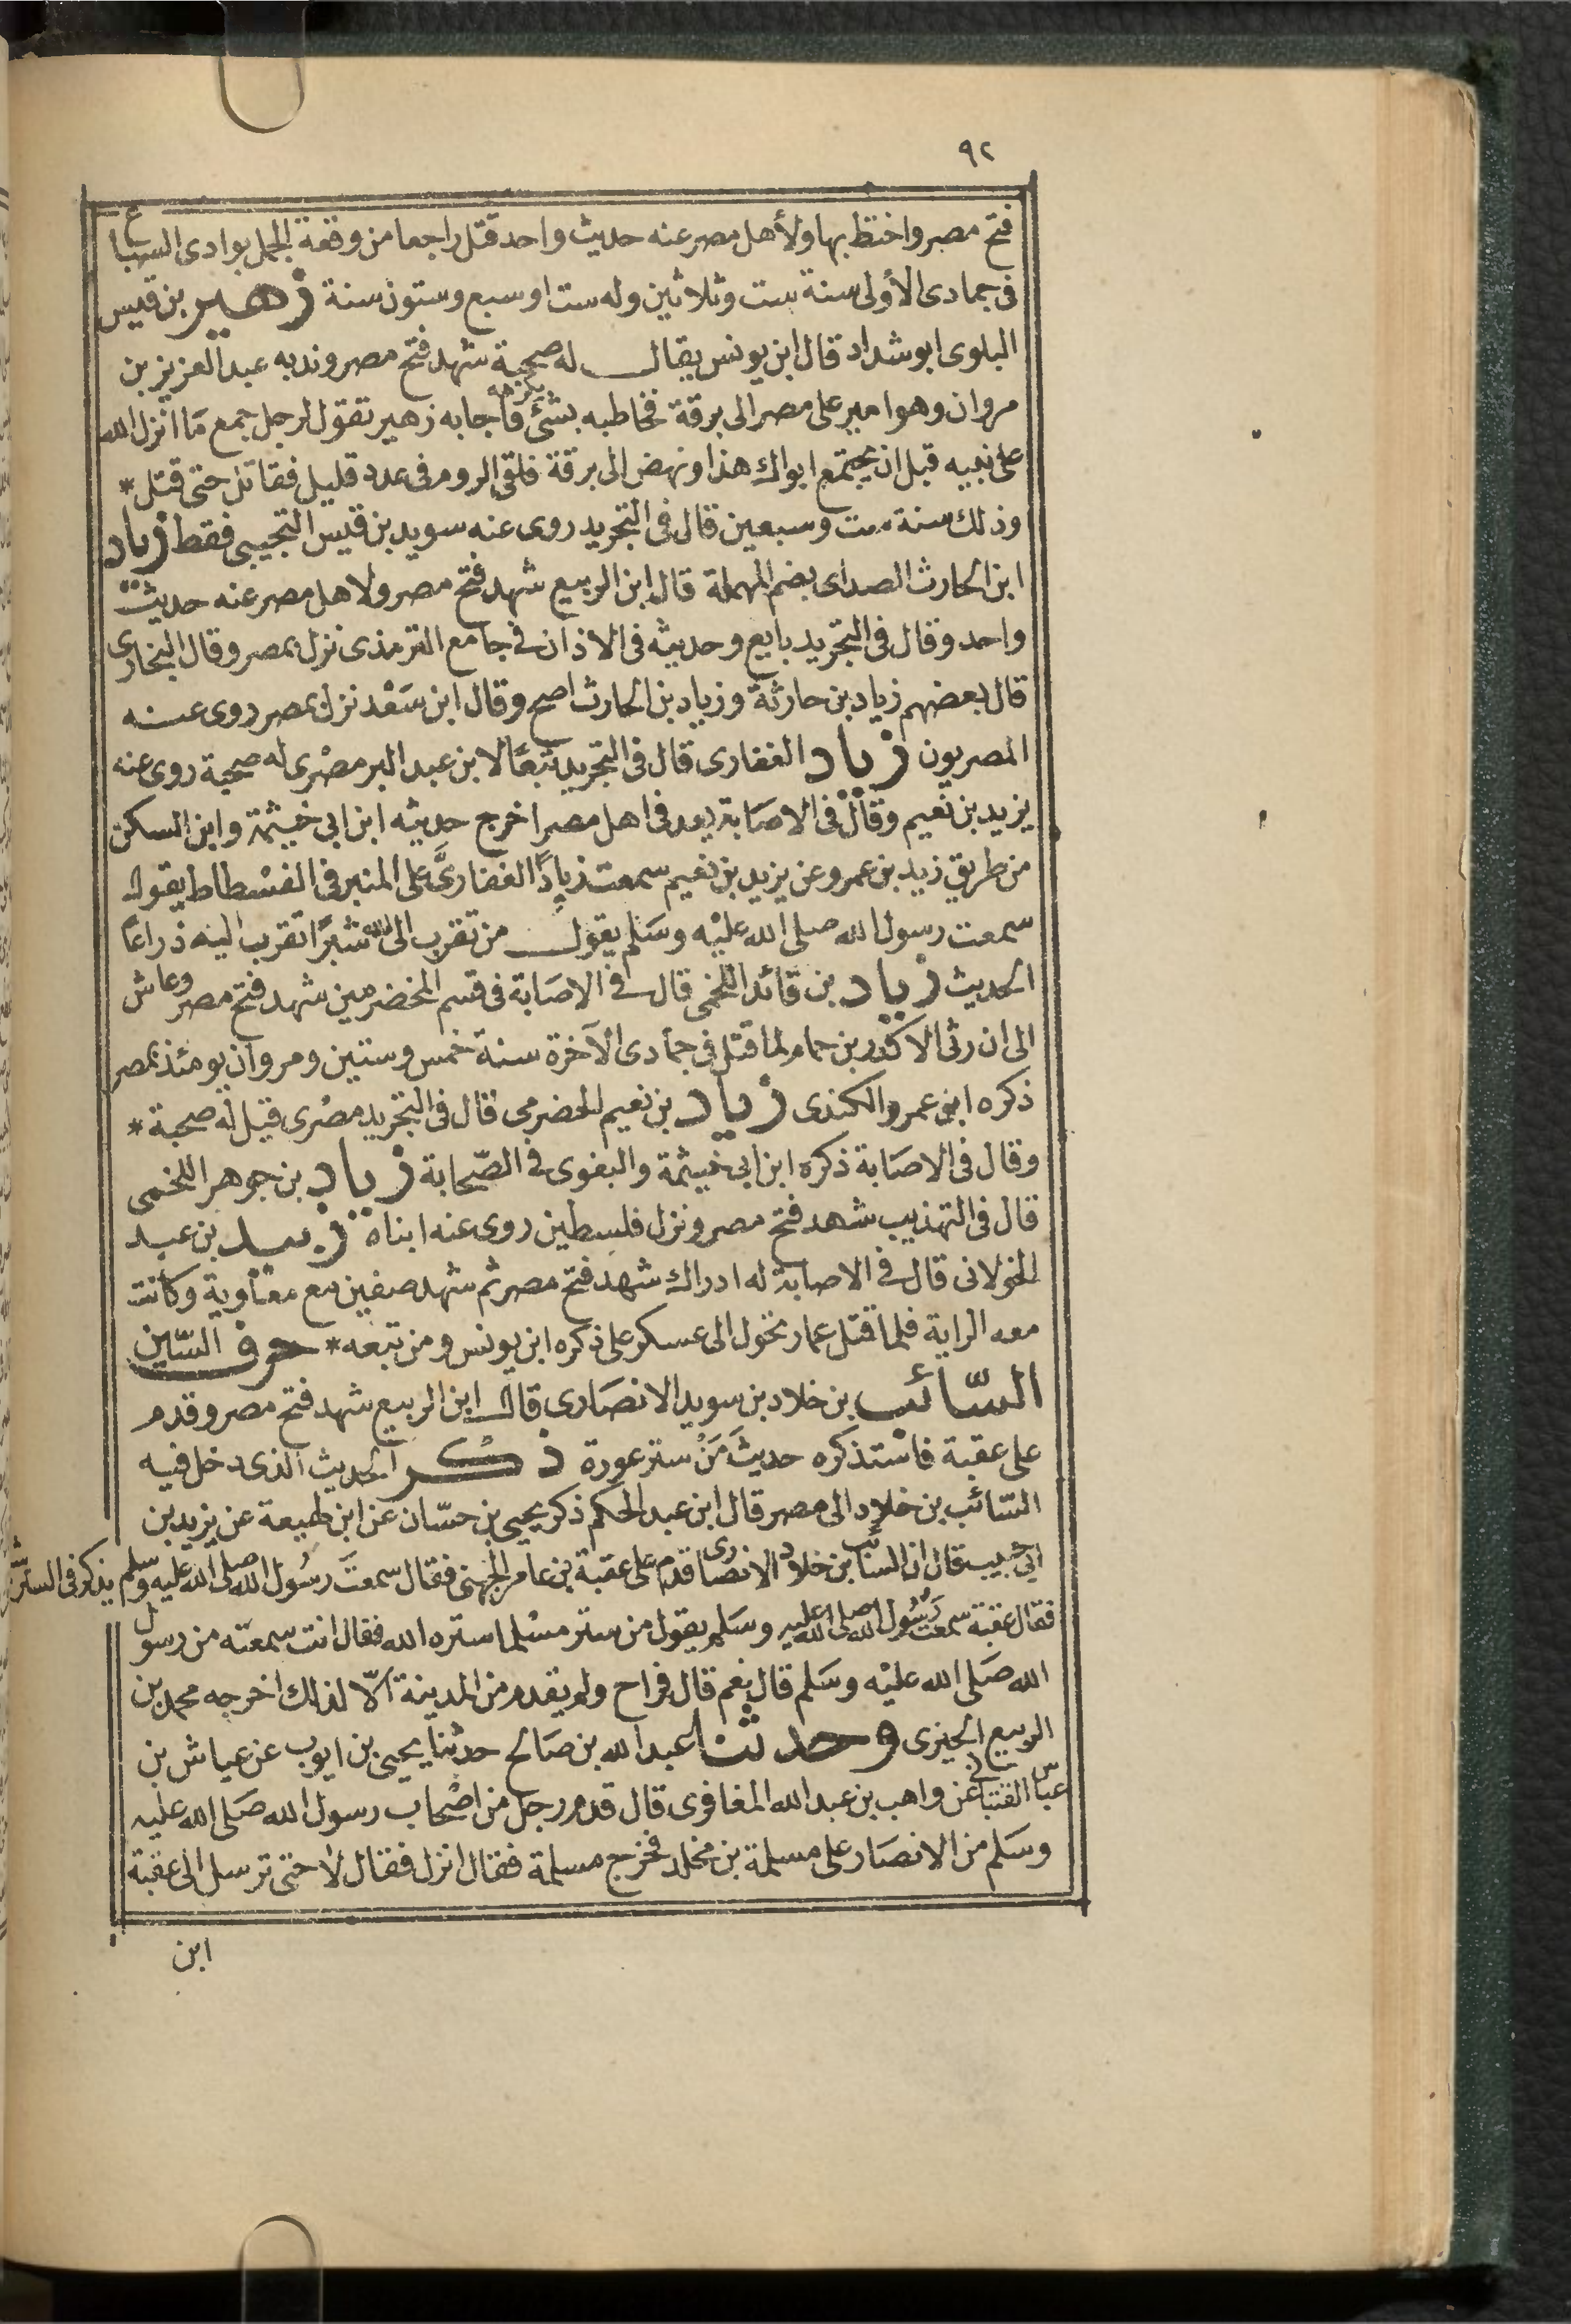 ٩٢
فتح مصر واختط بها ولأهل مصر عنه حديث واحد قتل راجعا من وقعة الجمل بوادى السباع
فى جمادى الأولى سنة ست وثلاثين وله ست اوسبع وستون سنة زهير بن قيس
البلوى ابوشداد قال ابن يونس يقال له صحبة شهد فتح مصر وندبه عبد العزيز بن
مروان وهوامير على مصر الى برقة فخاطبه بشئ يكرهه فأجابه زهير تقول لرجل جمع مَا انزل الله
على نبيه قبل ان يجتمع ابواك هذا ونهض الى برقة فلقى الروم فى عدد قليل فقاتل حتى قتل *
وذلك سنة ست وسبعين قال فى التجريد روى عنه سويد بن قيس التجيبى فقط زياد
ابن الحارث الصداى بضم المهملة قال ابن الربيع شهد فتح مصر ولاهل مصر عنه حديث
واحد وقال فى التجريد بايع وحديثه فى الاذان فى جامع الترمذى نزل بمصر وقال البخارى
قال بعضهم زياد بن حارثة وزياد بن الحارث اصح وقال ابن سَعْد نزل بمصر روى عنه
المصريون زياد الغفارى قال فى التجريد تبعًا لابن عبد البر مصْرى له صحبة روى عنه
يزيد بن نعيم وقال فى الاصَابة يعد فى اهل مصر اخرج حديثه ابن ابى خيثمة وابن السكن
من طريق زيد بن عمرو عن يزيد بن نعيم سمعت زيادًا الغفارىَّ على المنبر فى الفسْطاط يقول
سمعت رسول الله صلى الله عليْه وسَلم يقول من تقرب الى الله شبرًا تقرب اليْه ذراعًا
الحديث زياد بن قائد اللخمى قال فى الاصَابة فى قسم المخضرمين شهد فتح مصر وعاش
الى ان رثى الاكدر بن حمام لما قتل فى جمادى الآخرة سنة خمس وستين ومروان يومئذ بمصر
ذكره ابو عمرو الكندى زياد بن نعيم الحضرمى قال فى التجريد مصْرى قيل له صحبة *
وقال فى الاصَابة ذكره ابن ابى خيثمة والبغوى فى الصّحابة زياد بن جوهر اللخمى
قال فى التهذيب شهد فتح مصر ونزل فلسطين روى عنه ابناه زبيد بن عبد
الخولانى قال فى الاصابة له ادراك شهد فتح مصر ثم شهد صفين مع معاوية وكانت
معه الراية فلما قتل عمار تحول الى عسكر على ذكره ابن يونس ومن تبعه * حرف السّين
السّائب بن خلاد بن سويد الانصَارى قال ابن الربيع شهد فتح مصر وقدم
على عقبة فاسْتذكره حديثَ مَنْ ستر عورة ذكر الحديث الذى دخل فيه
السّائب بن خلاد الى مصر قال ابن عبد الحكم ذكر يحيى بن حسّان عن ابن لهيعة عن يزيد بن
ابى حبيب قال ان السائب بن خلاد الانصارى قدم على عقبة بن عامر الجهنى فقال سمعتَ رسُول الله صلى الله عليه وسلم يذكر فى الستر شئ
فقال عقبة سمعت رَسُول الله صلى الله عليه وسَلم يقول من ستر مسْلما ستره الله فقال انت سمعته من رسول
الله صَلى الله عليْه وسَلم قال نعم قال فراح ولم يقدم من المدينة الّا لذلك اخرجه محمد بن
الربيع الجيزى وحدثنا عبد الله بن صَالح حدثنا يحيى بن ايوب عن عياش بن
عبّاس القتبانى عن واهب بن عبد الله المغافرى قال قدم رجل من اصْحاب رسول الله صَلى الله عليه
وسَلم من الانصَار على مسلمة بن مخلد فخرج مسلمة فقال انزل فقال لا حتى ترسل الى عقبة
ابن